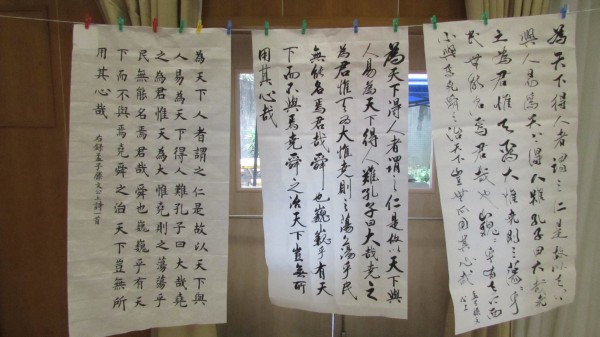 為天下得人者謂之仁是故以天下
與人易為天下得人難孔子曰大哉堯
之為君惟天為大惟堯則之蕩蕩乎
民無能名焉君哉舜也巍巍乎有天下而
不與焉堯舜之治天下豈無所用其心哉
為天下得人者謂之仁是故以天下與
人易為天下得人難孔子曰大哉堯之
為君惟天為大惟堯則之蕩蕩乎民
無能名焉君哉舜也巍巍乎有天
下而不與焉堯舜之治天下豈無所
用其心哉
為天下人者謂之仁是故以天下與
人易為天下得人難孔子曰大哉堯
之為君惟天為大惟堯則之蕩蕩乎
民無能名焉君哉舜也巍巍乎有天
下而不與焉堯舜之治天下豈無所
用其心哉
右錄孟子滕文公上詩一首